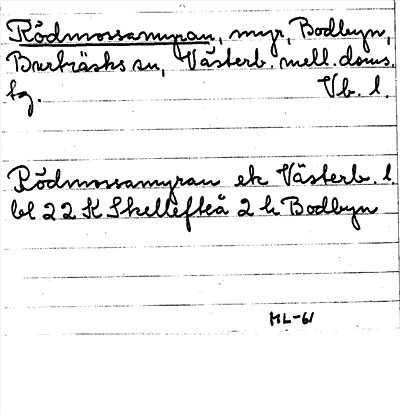 Rödmossamyran, myr, Bodbyn,
Burträsks sn, Västerb. mell. doms.
tg. Vb. l.
Rödmossamyran ek Västerb. l.
bl 22 K Skellefteå 2 h Bodbyn
ML-61